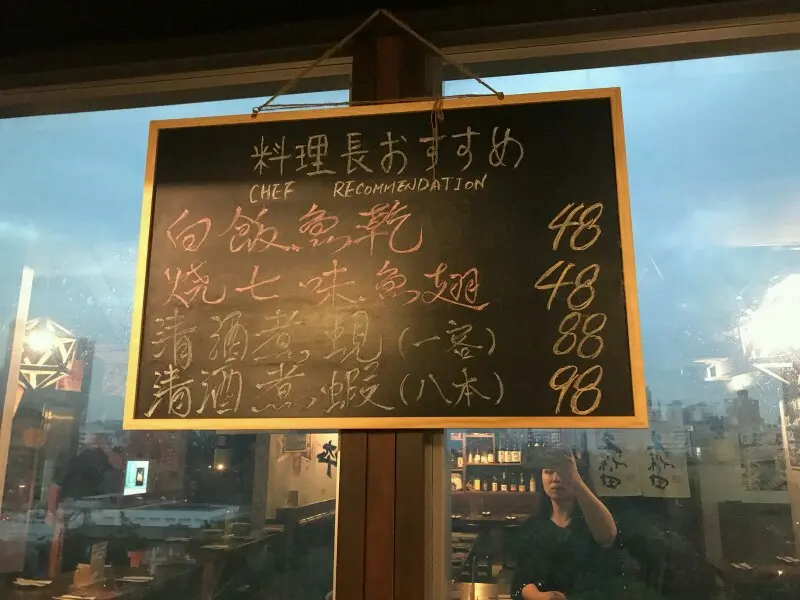 料理長おすすめ
CHEF RECOMMENDATION
白飯魚乾 48
烧七味魚翅 48
清酒煮蜆(一客) 88
清酒煮蝦(八本) 98